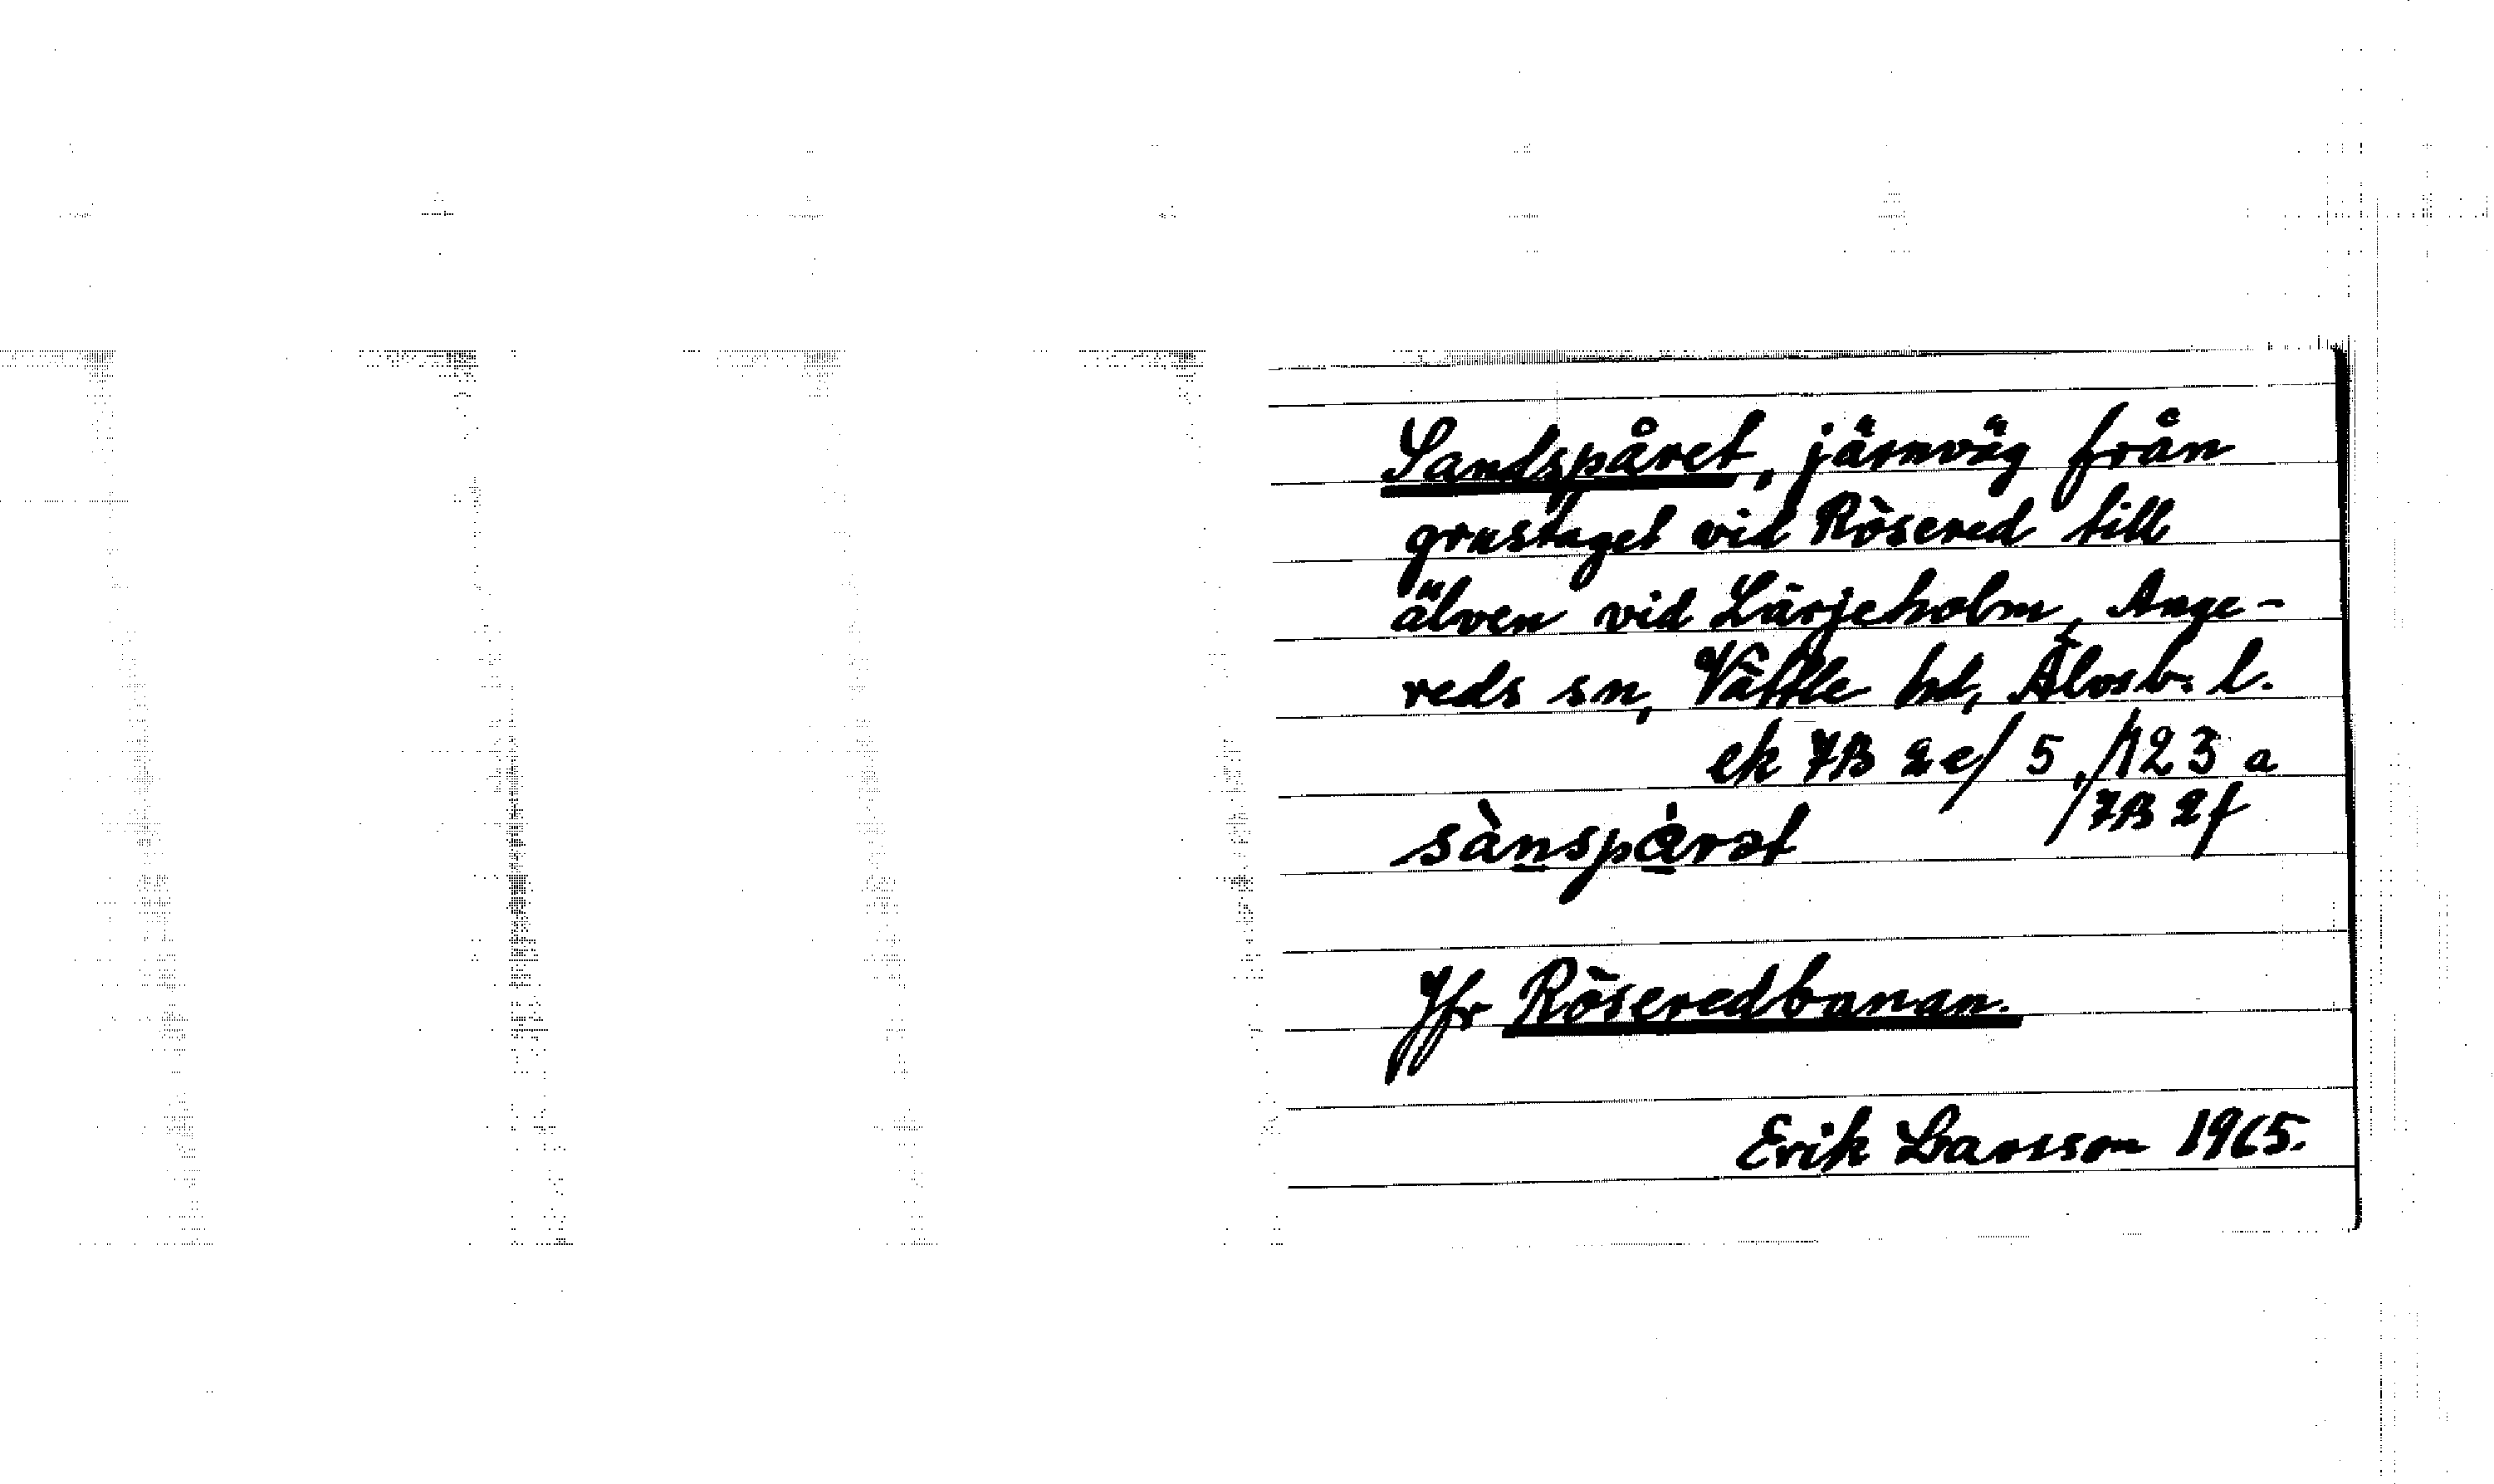 Sandspåret, järnväg från
grustaget vid Rösered till
älven vid Lärjeholm, Ange-
reds sn, Vättle hd, Älvsb. l.
ek 7B 2e/5, /123 a
/7B 2f
sànspàrət
Jfr Röseredbanan.
Erik Larsson 1965.